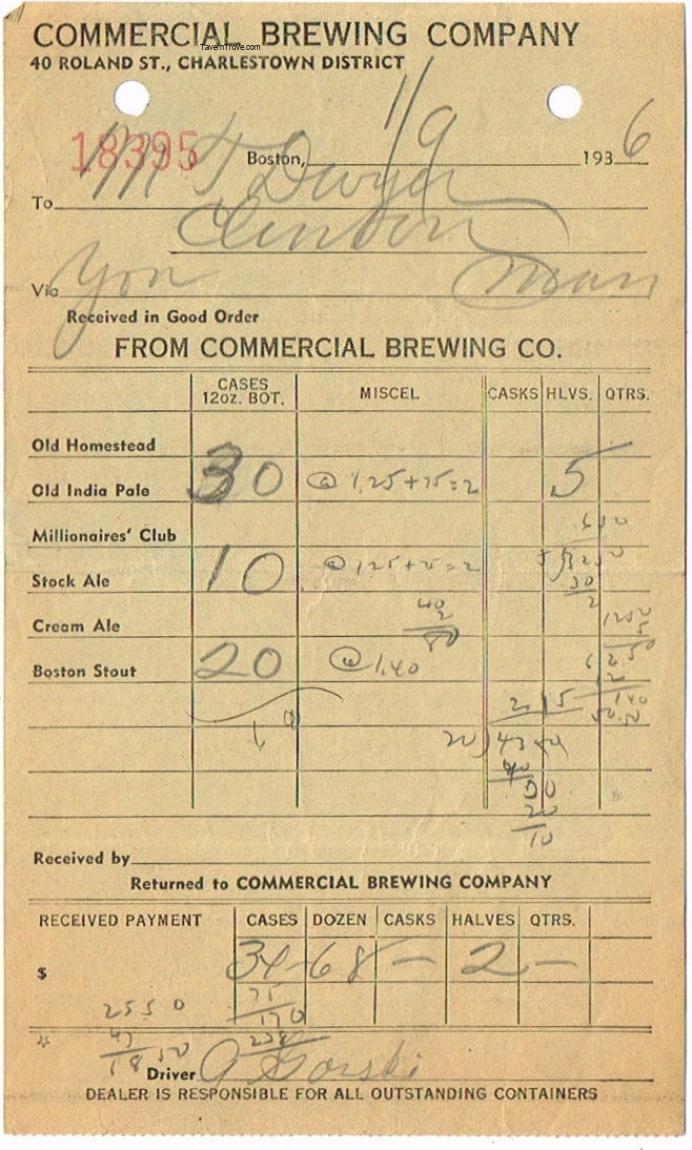 COMMERCIAL BREWING COMPANY
TavernTrove.com
40 ROLAND ST., CHARLESTOWN DISTRICT
18395 Boston, 1/9 1936
To M T Dwyer
Clinton
Via You Mass
Received in Good Order
FROM COMMERCIAL BREWING CO.
CASES 12oz. BOT. MISCEL CASKS HLVS. QTRS.
Old Homestead
Old India Pale 30 @ 1.25+75=2 5
Millionaires' Club
Stock Ale 10 @ 125+75=2
40
2
80
Cream Ale
Boston Stout 20 @ 1.40
215
20)4350
40
30
20
10
Received by
Returned to COMMERCIAL BREWING COMPANY
RECEIVED PAYMENT CASES DOZEN CASKS HALVES QTRS.
$ 34 - 68 - 2 -
75
170
238
2550
Driver A Gorski
DEALER IS RESPONSIBLE FOR ALL OUTSTANDING CONTAINERS